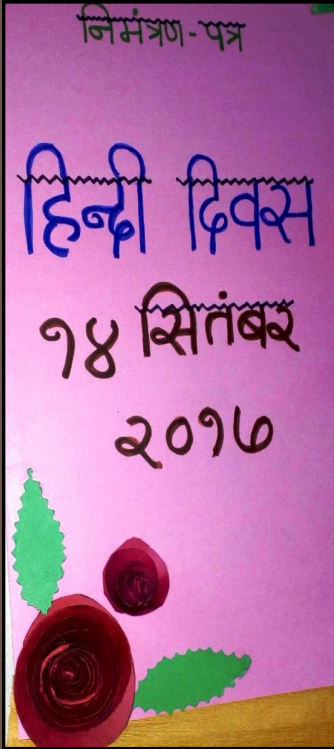 निमंत्रण-पत्र
हिन्दी दिवस
१४ सितंबर
२०१७